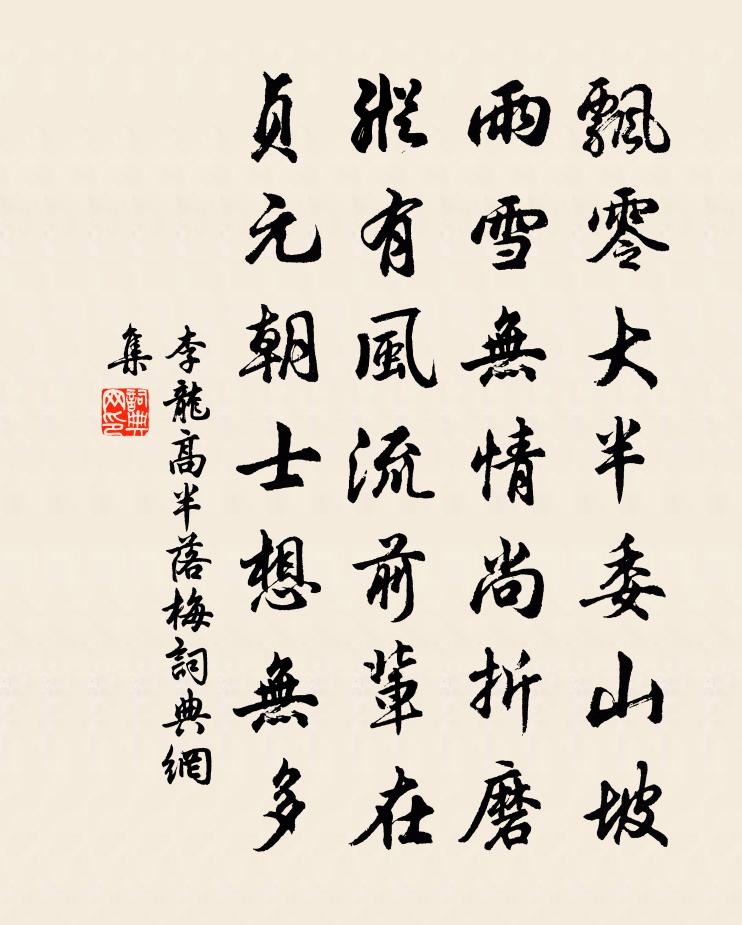 飄零大半委山坡
雨雪無情尚折磨
縱有風流前輩在
貞元朝士想無多
李龍高半落梅詞典網
集
詞典
网印